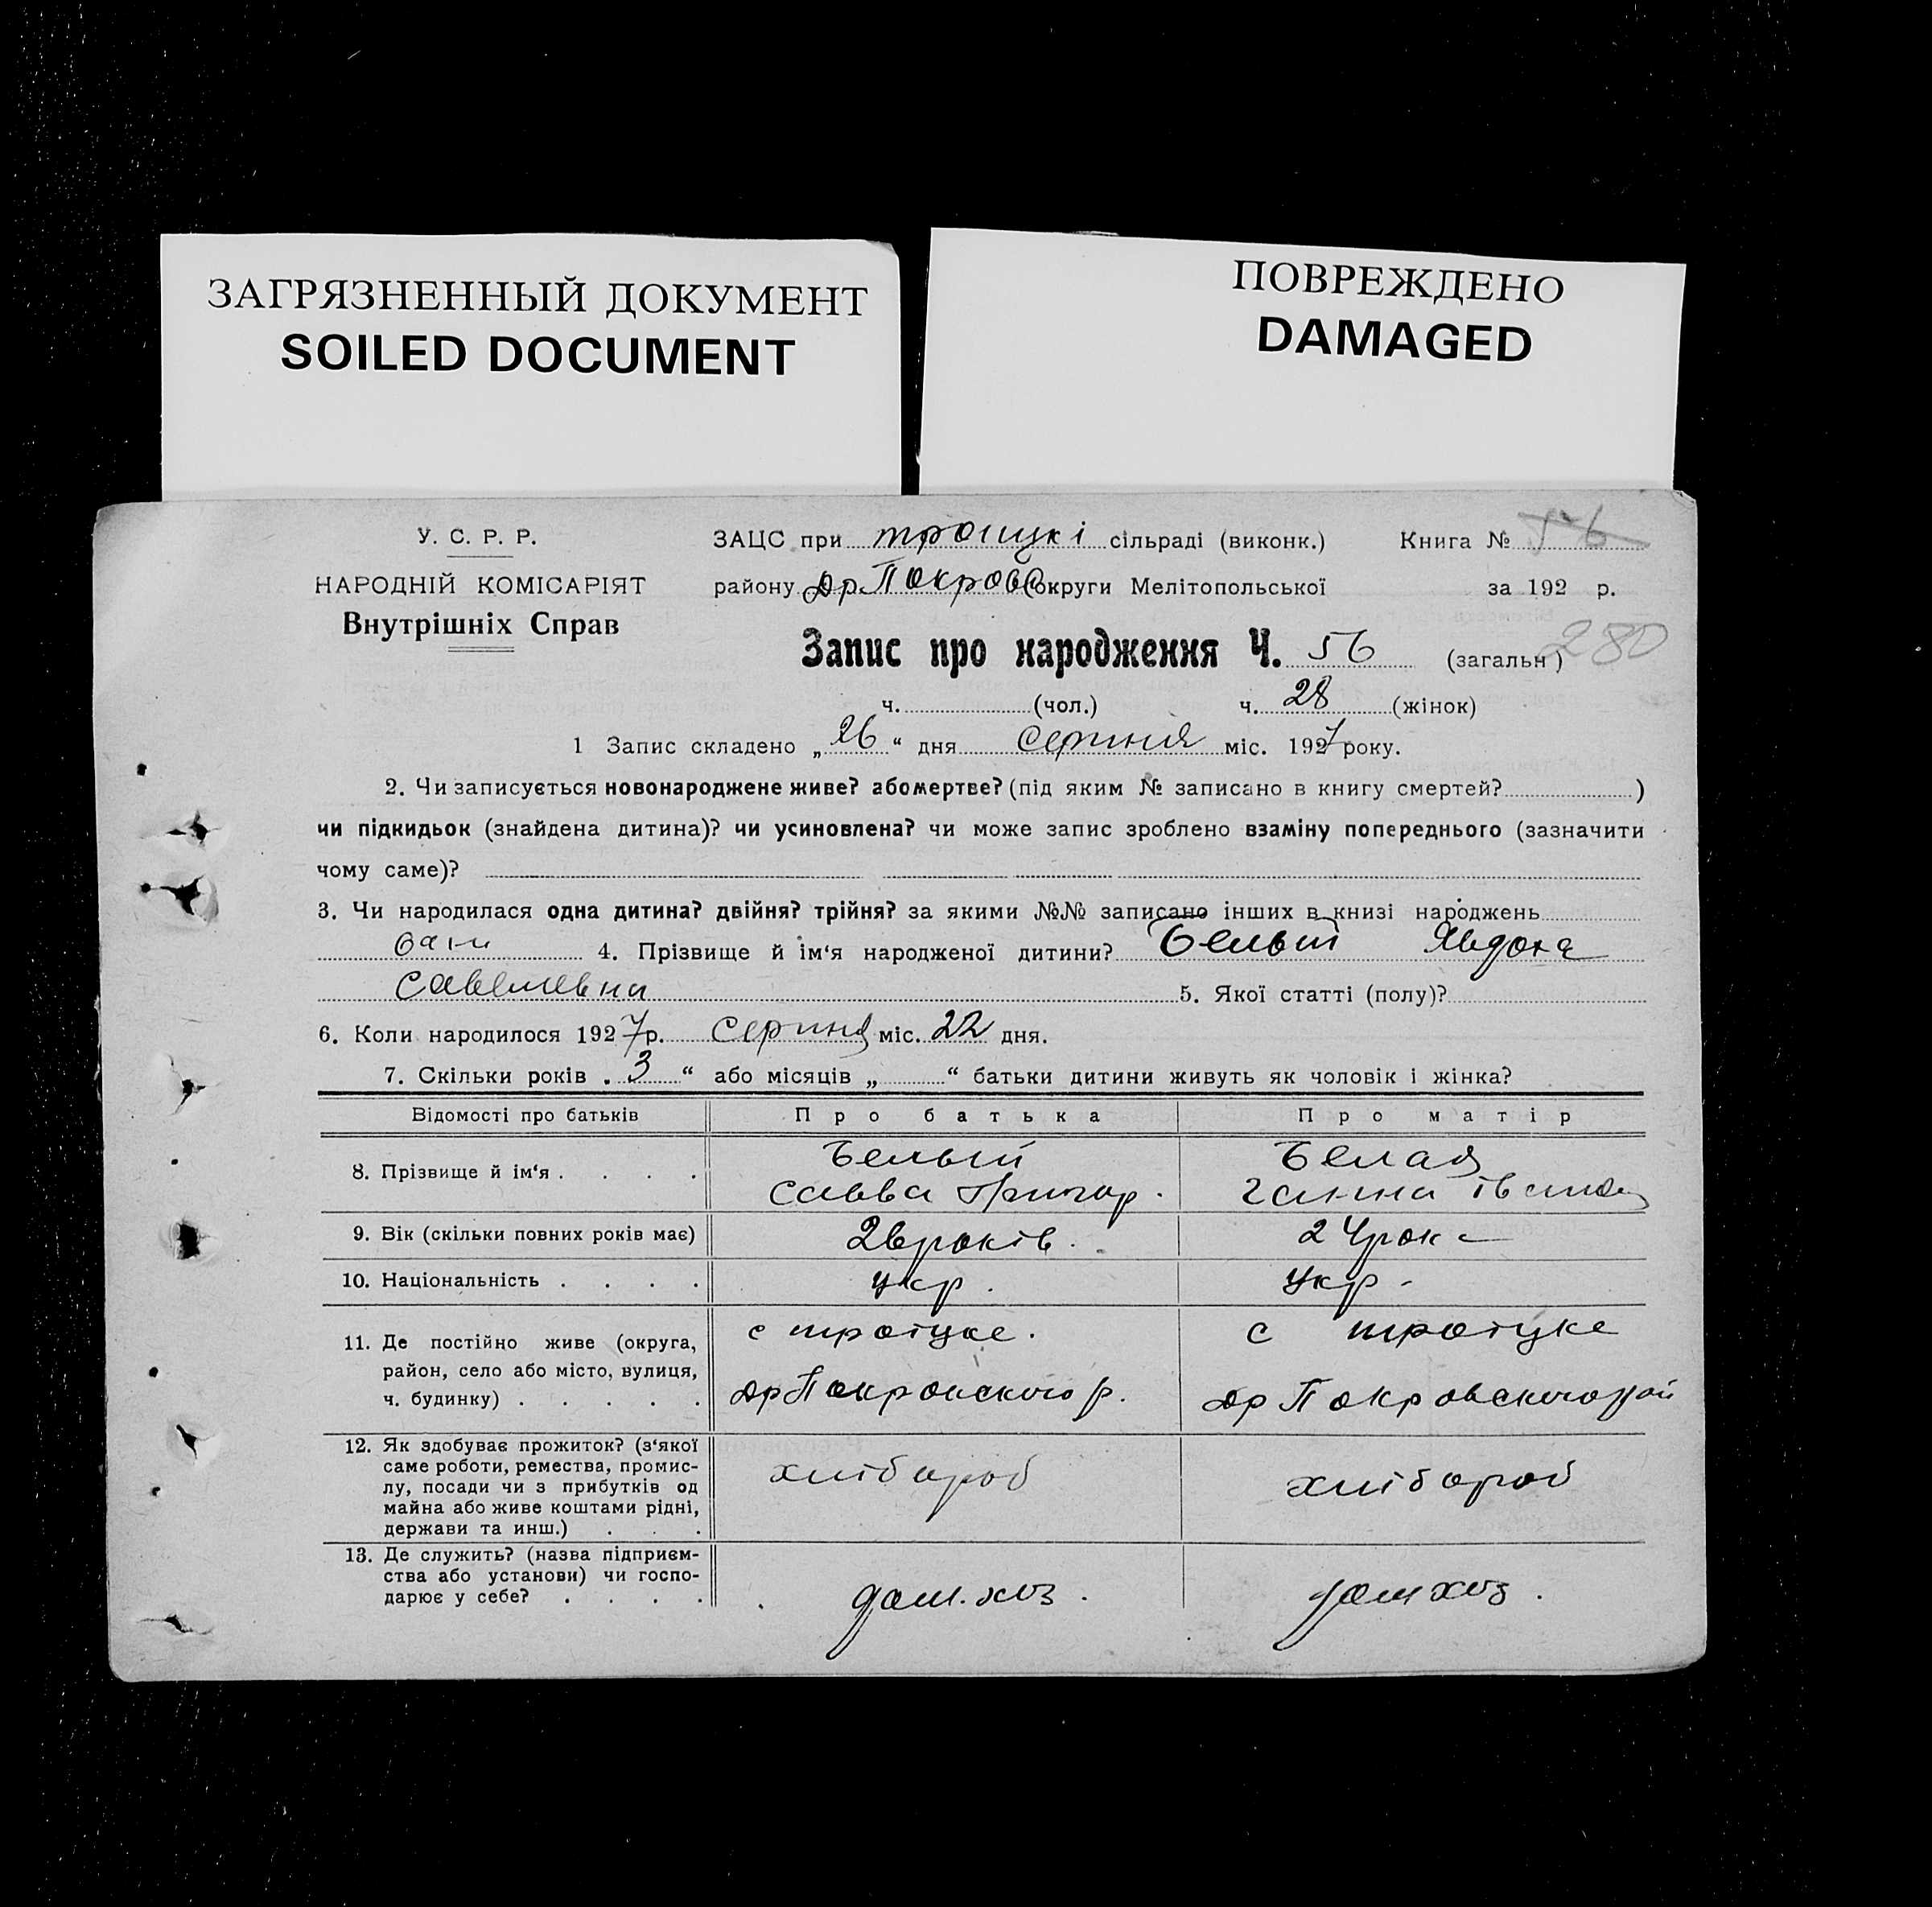 ЗАГРЯЗНЕННЫЙ ДОКУМЕНТ
SOILED DOCUMENT
ПОВРЕЖДЕНО
DAMAGED
У. С. Р. Р.
НАРОДНІЙ КОМІСАРІЯТ
Внутрішніх Справ
ЗАЦС при троицкі сільраді (виконк.) Книга № 56
району др. Покровс округи Мелітопольської за 192 р.
Запис про народження Ч. 56 (загальн) 280
ч. (чол.) ч. 28 (жінок)
1 Запис складено „26“ дня серпня міс. 1927 року.
2. Чи записується новонароджене живе? або мертве? (під яким № записано в книгу смертей? )
чи підкидьок (знайдена дитина)? чи усиновлена? чи може запис зроблено взаміну попереднього (зазначити
чому саме)?
3. Чи народилася одна дитина? двійня? трійня? за якими №№ записано інших в книзі народжень
4. Прізвище й ім‘я народженої дитини? Белый Явдоха
Савелиевна 5. Якої статті (полу)?
6. Коли народилося 1927 р. серпня міс. 22 дня.
7. Скільки років „3“ або місяців „ “ батьки дитини живуть як чоловік і жінка?
Відомості про батьків Про батька Про матір
8. Прізвище й ім‘я . . . . Белый Белая
Савва Григор. Ганна Іванов
9. Вік (скільки повних років має) 26 років. 24 рок
10. Національність . . . . укр. укр.
11. Де постійно живе (округа, район, село або місто, вулиця, ч. будинку) . . . . .
с троіцке. с троіцке
др Покровского р. др Покровского рай
12. Як здобуває прожиток? (з‘якої
саме роботи, ремества, промис-
лу, посади чи з прибутків од
майна або живе коштами рідні,
держави та инш.) . . .
хлібороб хлібороб
13. Де служить? (назва підприєм-
ства або установи) чи госпо-
дарює у себе? . . . .
дом. хоз. дом хоз.